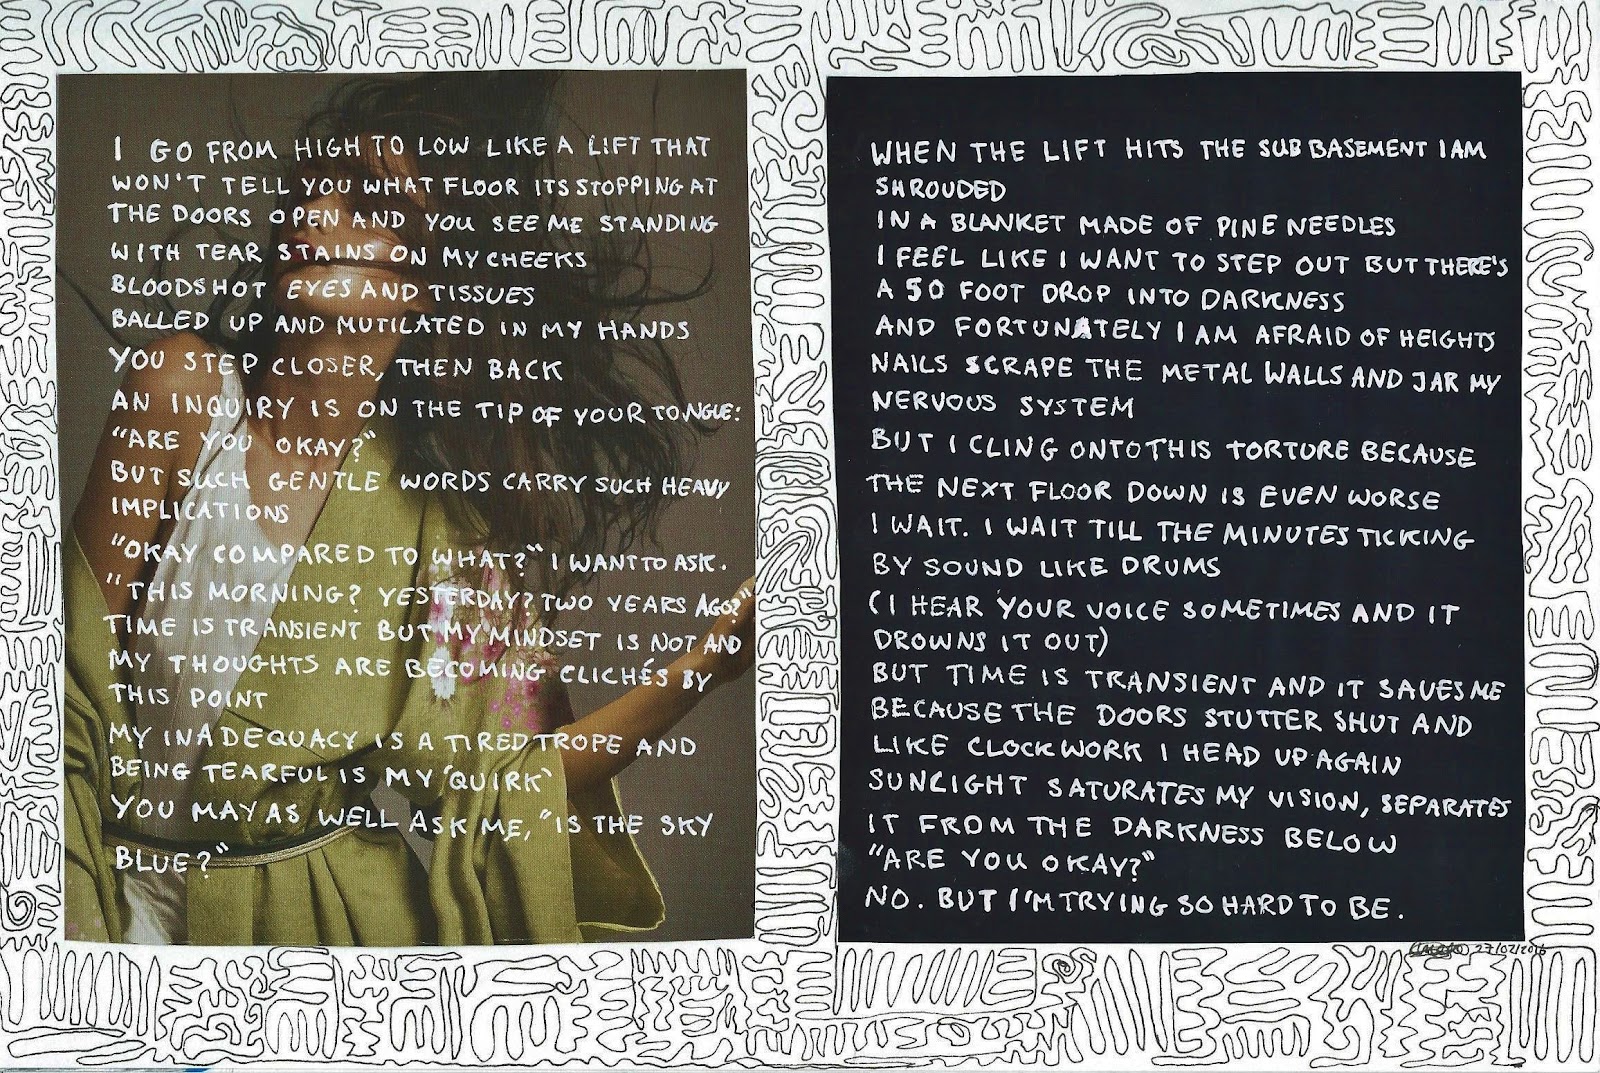 I GO FROM HIGH TO LOW LIKE A LIFT THAT
WON'T TELL YOU WHAT FLOOR ITS STOPPING AT
THE DOORS OPEN AND YOU SEE ME STANDING
WITH TEAR STAINS ON MY CHEEKS
BLOODSHOT EYES AND TISSUES
BALLED UP AND MUTILATED IN MY HANDS
YOU STEP CLOSER, THEN BACK
AN INQUIRY IS ON THE TIP OF YOUR TONGUE:
"ARE YOU OKAY?"
BUT SUCH GENTLE WORDS CARRY SUCH HEAVY
IMPLICATIONS
"OKAY COMPARED TO WHAT?" I WANT TO ASK.
"THIS MORNING? YESTERDAY? TWO YEARS AGO?"
TIME IS TRANSIENT BUT MY MINDSET IS NOT AND
MY THOUGHTS ARE BECOMING CLICHÉS BY
THIS POINT
MY INADEQUACY IS A TIRED TROPE AND
BEING TEARFUL IS MY 'QUIRK'
YOU MAY AS WELL ASK ME, "IS THE SKY
BLUE?"
WHEN THE LIFT HITS THE SUB BASEMENT I AM
SHROUDED
IN A BLANKET MADE OF PINE NEEDLES
I FEEL LIKE I WANT TO STEP OUT BUT THERE'S
A 50 FOOT DROP INTO DARKNESS
AND FORTUNATELY I AM AFRAID OF HEIGHTS
NAILS SCRAPE THE METAL WALLS AND JAR MY
NERVOUS SYSTEM
BUT I CLING ONTO THIS TORTURE BECAUSE
THE NEXT FLOOR DOWN IS EVEN WORSE
I WAIT. I WAIT TILL THE MINUTES TICKING
BY SOUND LIKE DRUMS
(I HEAR YOUR VOICE SOMETIMES AND IT
DROWNS IT OUT)
BUT TIME IS TRANSIENT AND IT SAVES ME
BECAUSE THE DOORS STUTTER SHUT AND
LIKE CLOCKWORK I HEAD UP AGAIN
SUNLIGHT SATURATES MY VISION, SEPARATES
IT FROM THE DARKNESS BELOW
"ARE YOU OKAY?"
NO. BUT I'M TRYING SO HARD TO BE.
27/02/2016